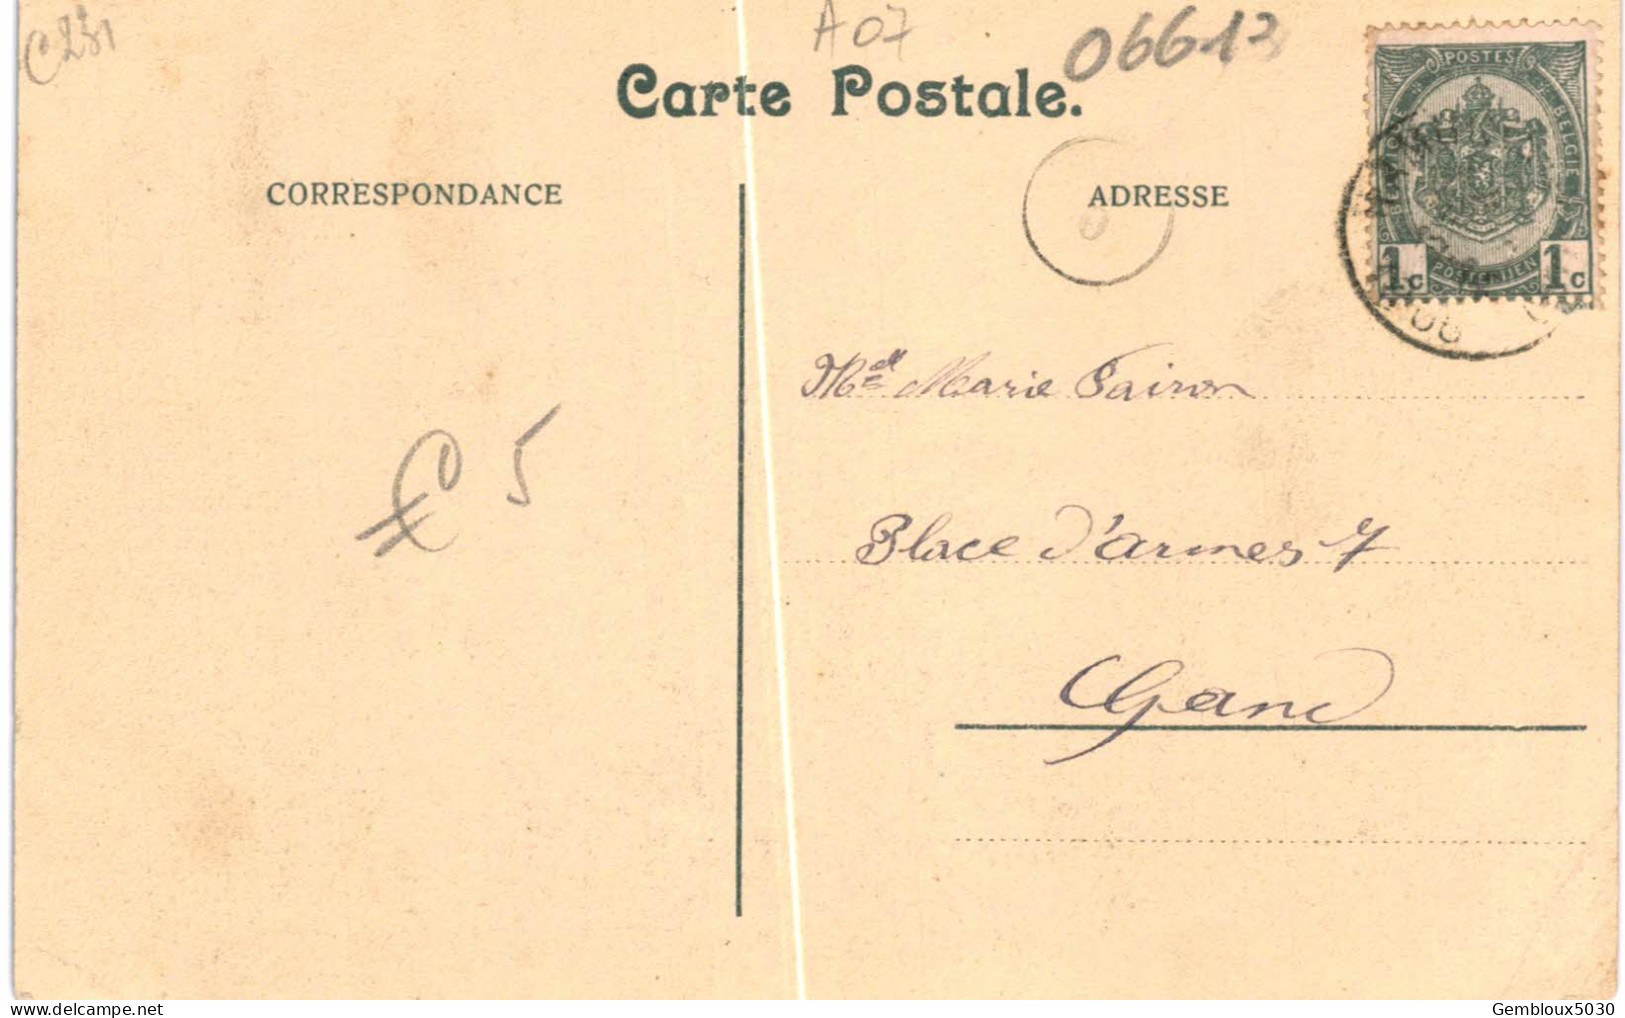 C231
A07
06613
Carte Postale.
CORRESPONDANCE
ADRESSE
POSTES
BELGIQUE
BELGIE
POSTERIJEN
1c 1c
Mell Marie Fairon
€ 5
Place d'armes 7
Gand
delcampe.net
Gembloux5030